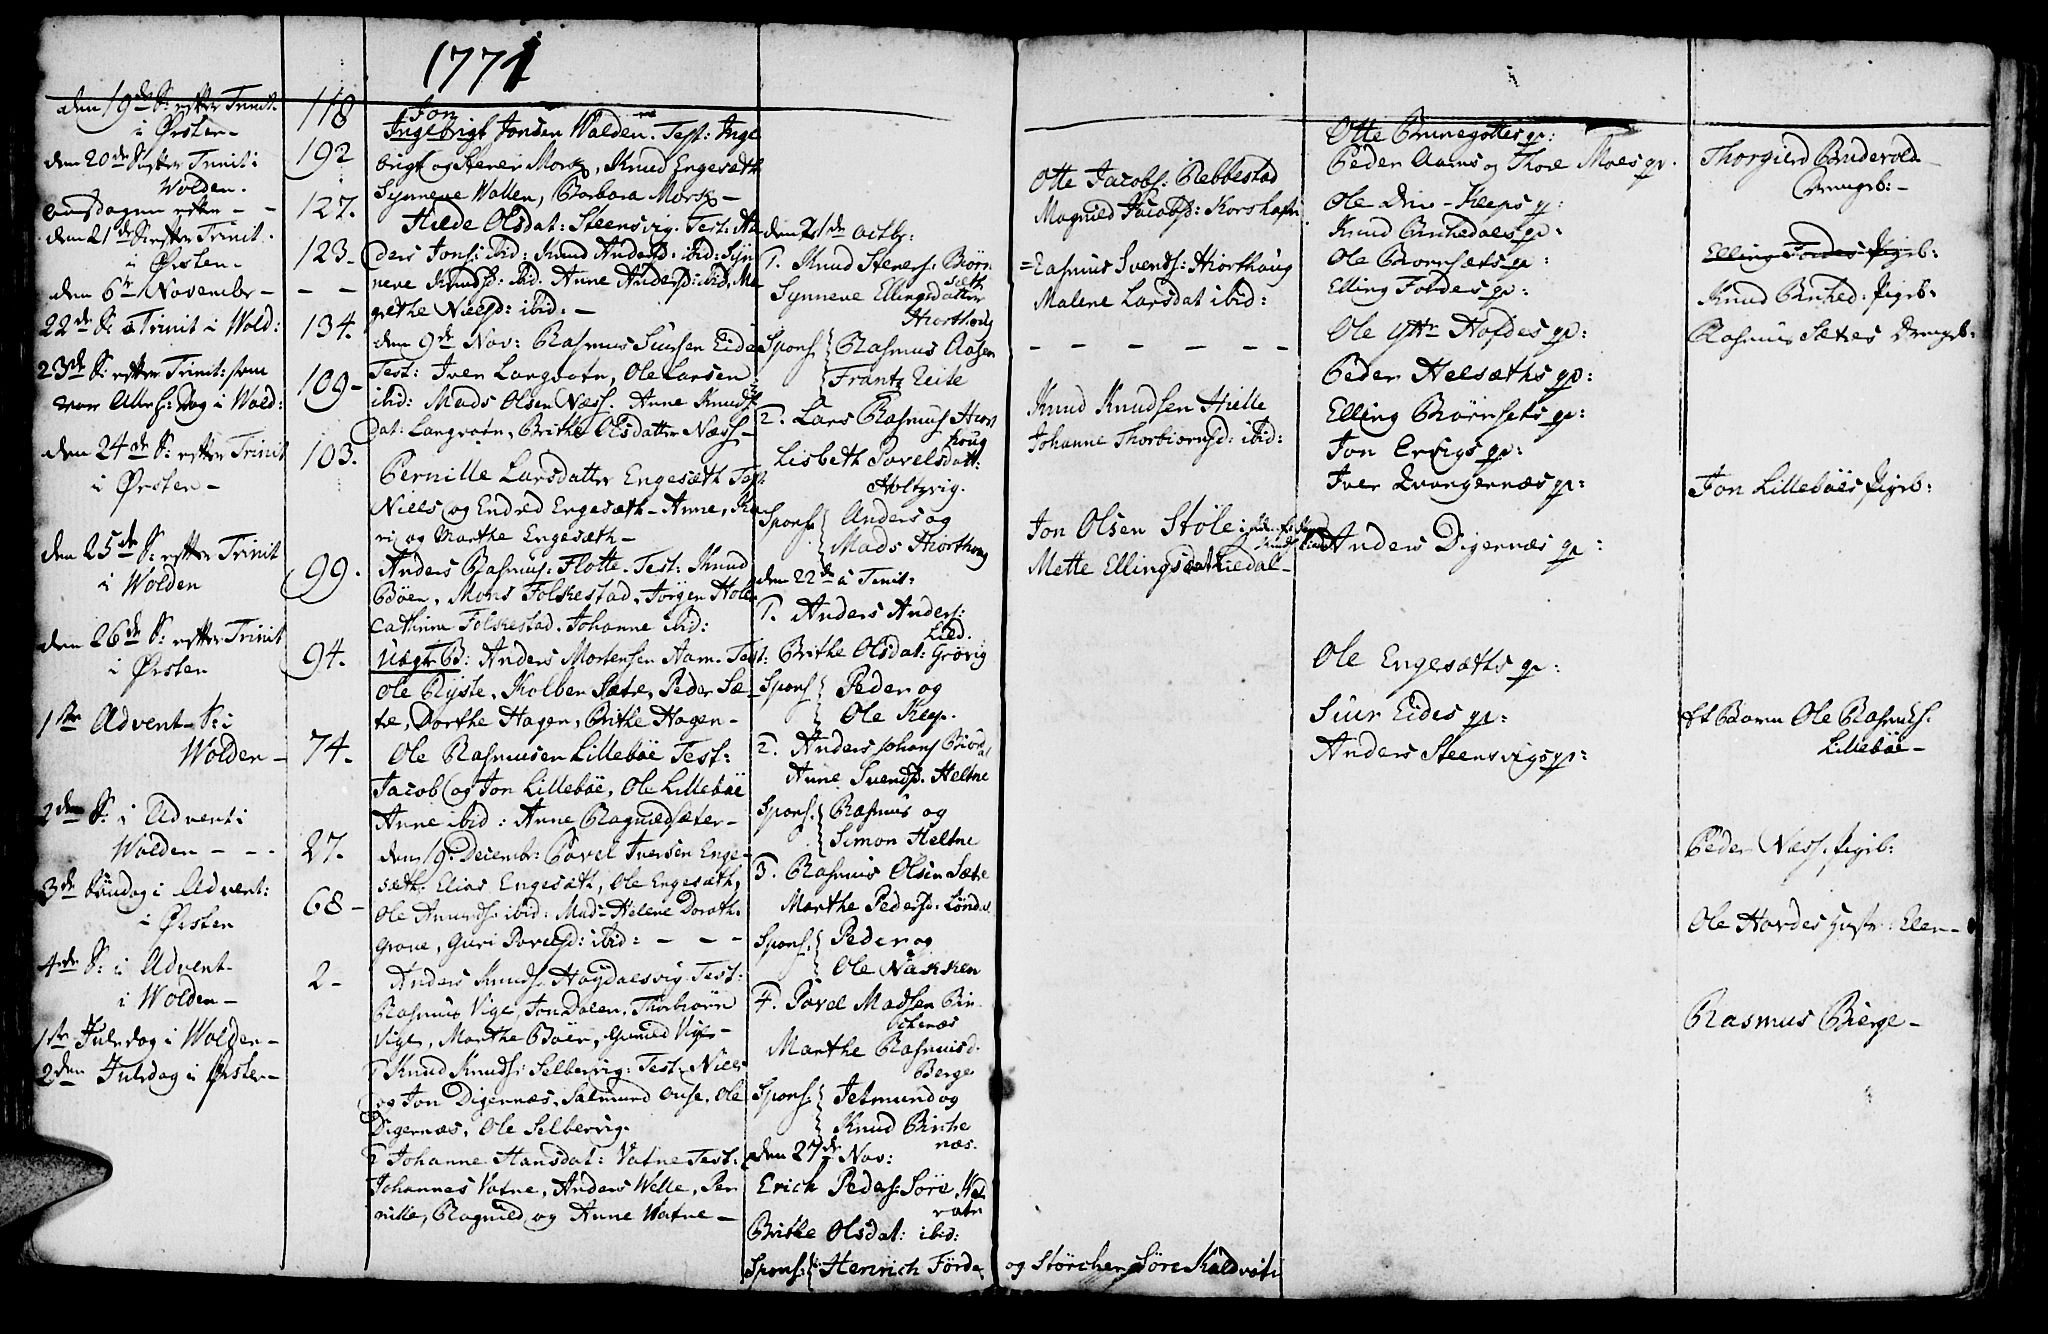 1771
den 19de S: efter Trinit.
i Ørsten-
den 20de S: efter Trinit:
Wolden.
den 21de S: efter Trinit.
i Ørsten-
den 6te Novembr-
22de S: a Trinit i Wold:
23de S: efter Trinit: som
var Alle H: Dag i Wold:
den 24de S: efter Trinit
i Ørsten-
den 25de S: efter Trinit
i Wolden
den 26de S: efter Trinit
i Ørsten
1ste Advent-S: i
Wolden-
2den S: i Adventi
Wolden - - -
3de Søndag i Advent:
i Ørsten
4de S: i Advent-
i Wolden-
1ste Juledag i Wolden-
2den Juledag i Ørsten-
118
192
127.
123-
- -
134.
109-
103.
99.
94.
74.
27.
68-
2-
Jon
Ingebrigt Jonsen Walden. Test: Inge
brigt og Stener Mork, Knud Engesæth
Synneve Wallen, Barbara Mork-
Hilde Olsdat: Steensvig. Test: An
ders Jons: ibid: Knud Andersd: ibid: Syn
neve Knudsd: ibid. Anne Andersd: ibid, Ma
grethe Nielsd: ibid:-
den 9de Nov: Rasmus Siursen Eide
Test: Iver Langvatn, Ole Larsen
ibid: Mads Olsen Næss. Anne Knuds
dat: Langvatn, Brithe Olsdatter Næss-
Pernille Larsdatter Engesæth Test
Niels og Endred Engesæth-Anne, Ka
ri og Marthe Engesæth-
Anders Rasmus: Flotte. Test: Knud
Böen, Mons Folkestad, Jörgen Hole
Cathrine Folkestad. Johanne ibid:
Uægte B: Anders Mortensen Aam. Test:
Ole Ryste, Kolben Sætre, Peder Sæ-
tre, Dorthe Hagen, Brithe Hagen-
Ole Rasmusen Lillebøe Test:
Jacob og Jon Lillebøe, Ole Lillebøe
Anne ibid: Anne Ragnildsæter-
den 19. Decembr: Povel Iversen Enge-
sæth. Elias Engesæth, Ole Engesæth,
Ole Amunds: ibid: Mad- Helene Doroth:
Grove, Guri Povelsd: ibid: - - -
Anders Knuds: Høydalsvig. Test:
Rasmus Vige, Jon Dalen, Thorbiørn
Vige, Marthe Böen, Gunild Vige-
Knud Knuds: Selbervig: Test: Niels
og Jon Digernæs. Salmund Ouse, Ole
Digernæs, Ole Selbervig.
Johanne Hansdat: Vatne Test:
Johannes Vatne, Anders Welle, Per
nille, Ragnild og Anne Watne-
den 21de Octbr:
1. Knud Steners: Biørn
sæth
Synneve Ellingsdatter
Hiorthoug
Spons: Rasmus Aasen
Frantz Leite
2. Lars Rasmus: Hiort
houg
Lisbeth Povelsdatt:
Holtzvig.
Spons: Anders og
Mads Hiorthoug
den 22de a Trinit:
1. Anders Anders:
Lied.
Brithe Olsdat: Grøvig
Spons: Peder og
Ole Keep.
2. Anders Johans:
Anne Svendsd: Heltne
Spons: Rasmus og
Simon Heltne
3. Rasmus Olsen Sætre
Marthe Pedersd:
Spons: Peder og
Ole Nakken
4. Povel Madsen Bir
kenæs
Marthe Rasmusd:
Berge
Spons: Jetmund og
Knud Birke
næs.
den 27de Nov:
Erich Peders: Søre Kal
vatn
Brithe Olsdat: ibid:
Spons: Henrich Förde og Störcher Søre Kaldvatn
Otte Jacobs: Rebbestad
Magnild Jacobsd:
Rasmus Svends: Hiorthoug
Malene Larsdat ibid:
- - - - - -
Knud Knudsen Hielle
Johanne Thorbiørnsd: ibid:
Jon Olsen Støle
Mette Ellingsdat: Liedal-
Otte Brunegottes gp:
Peder Aams og Thore Moes gp.
Ole Keeps gp:
Knud Birkedals gp:
Ole Biørnsets gp:
Elling Foldes gp:
Ole Ytter Hofdes gp:
Peder Helsæths gp:
Elling Biørnsets gp:
Jon Ervigs gp:
Iver Qvangernæs gp:
Anders Digernæs gp:
Ole Engesæths gp:
Siur Eides gp:
Anders Steensvigs gp:
Drengeb:-
Elling Foldes Pigeb:
Knud Birked: Pigeb:
Rasmus Sætres Drengeb:
Jon Lillebøes Pigeb:
Et Barn Ole Rasmus:
Lillebøe-
Peder Næss: Pigeb:
Ole Hovdes Hustr: Elen-
Rasmus Bierge-